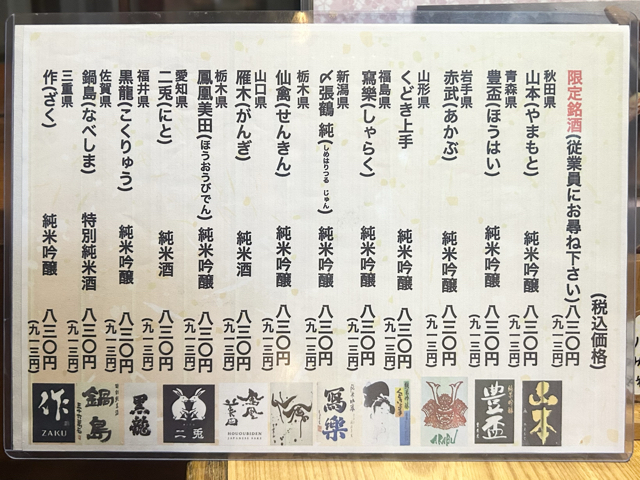 (税込価格)
限定銘酒(従業員にお尋ね下さい)八三〇円
(九一三円)
秋田県
山本(やまもと) 純米吟醸 八三〇円
(九一三円)
青森県
豊盃(ほうはい) 純米吟醸 八三〇円
(九一三円)
岩手県
赤武(あかぶ) 純米吟醸 八三〇円
(九一三円)
山形県
くどき上手 純米吟醸 八三〇円
(九一三円)
福島県
寫樂(しゃらく) 純米吟醸 八三〇円
(九一三円)
新潟県
〆張鶴 純(しめはりつる じゅん) 純米吟醸 八三〇円
(九一三円)
栃木県
仙禽(せんきん) 純米吟醸 八三〇円
(九一三円)
山口県
雁木(がんぎ) 純米酒 八三〇円
(九一三円)
栃木県
鳳凰美田(ほうおうびでん) 純米吟醸 八三〇円
(九一三円)
愛知県
二兎(にと) 純米酒 八三〇円
(九一三円)
福井県
黒龍(こくりゅう) 純米吟醸 八三〇円
(九一三円)
佐賀県
鍋島(なべしま) 特別純米酒 八三〇円
(九一三円)
三重県
作(ざく) 純米吟醸 八三〇円
(九一三円)
作
ZAKU
鍋島
黒龍
二兎
HOUOUBIDEN
寫樂
AKABU
豊盃
山本